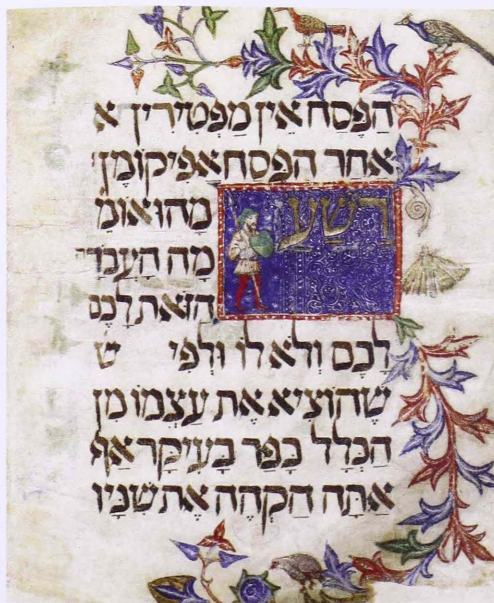 הַפֶּסַח אֵין מַפְטִירִין א
אַחַר הַפֶּסַח אֲפִיקוֹמָן
רָשָׁע מַהוּ אוֹמ
מָה הָעֲבֹד
הַזֹּאת לָכֶם
לָכֶם וְלֹא לוֹ וּלְפִי ש
שֶׁהוֹצִיא אֶת עַצְמוֹ מִן
הַכְּלָל כָּפַר בָּעִיקָר אַף
אַתָּה הַקְהֵה אֶת שִׁנָּיו